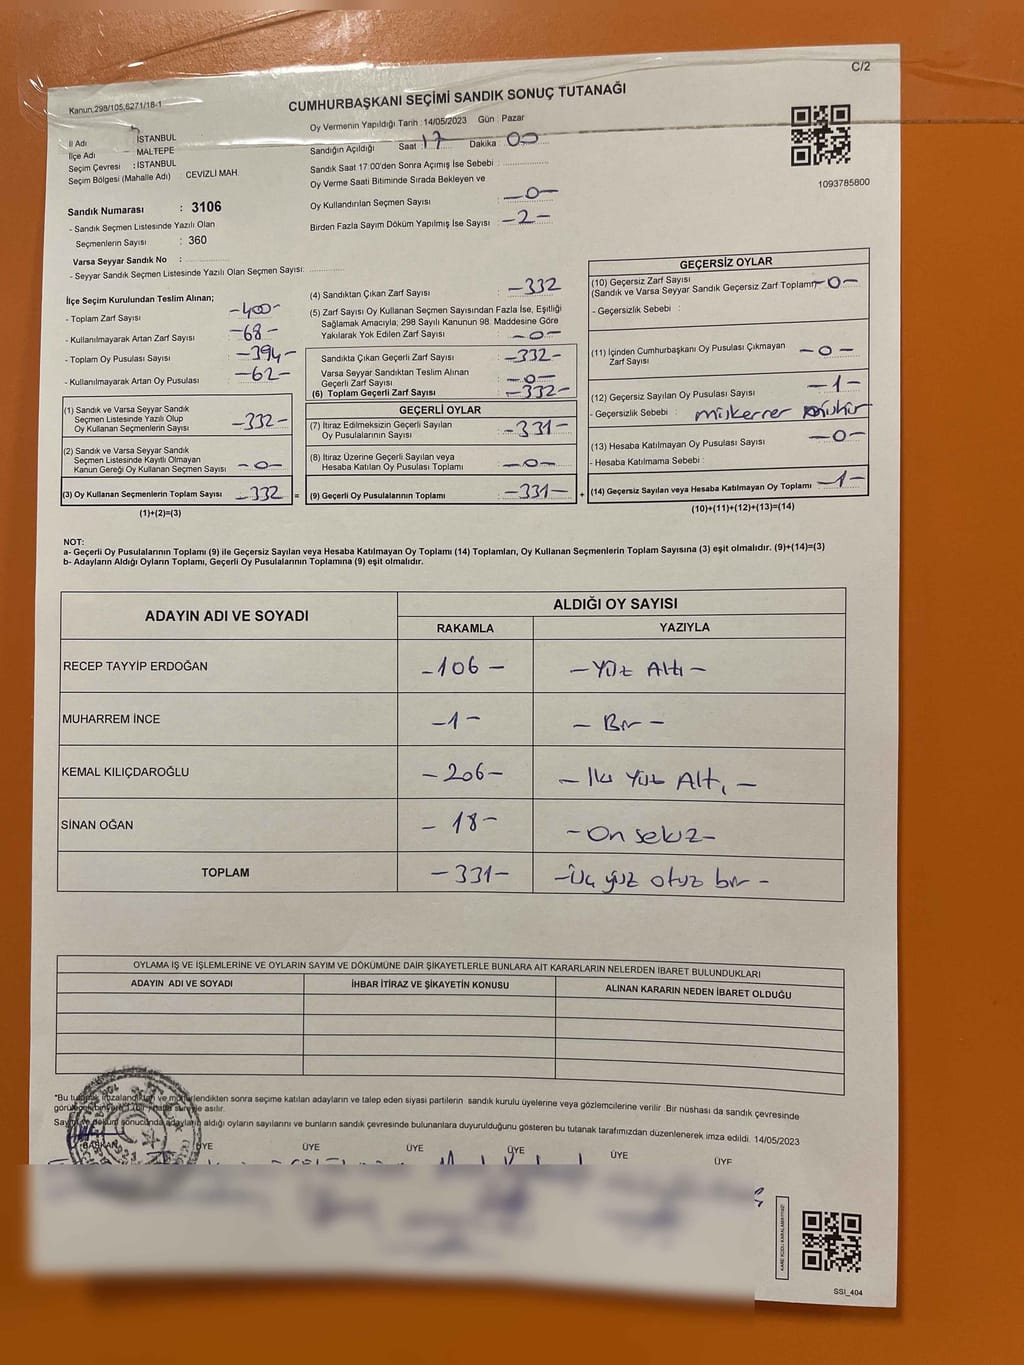 C/2
Kanun,298/105,6271/18-1
CUMHURBAŞKANI SEÇİMİ SANDIK SONUÇ TUTANAĞI
İl Adı : İSTANBUL
İlçe Adı MALTEPE
Seçim Çevresi : İSTANBUL
Seçim Bölgesi (Mahalle Adı) CEVİZLİ MAH.
Sandık Numarası : 3106
- Sandık Seçmen Listesinde Yazılı Olan
Seçmenlerin Sayısı : 360
Varsa Seyyar Sandık No :
- Seyyar Sandık Seçmen Listesinde Yazılı Olan Seçmen Sayısı:
Oy Vermenin Yapıldığı Tarih : 14/05/2023 Gün : Pazar
Sandığın Açıldığı Saat 17 Dakika 00
Sandık Saat 17:00'den Sonra Açımış İse Sebebi :
Oy Verme Saati Bitiminde Sırada Bekleyen ve
Oy Kullandırılan Seçmen Sayısı : -0-
Birden Fazla Sayım Döküm Yapılmış İse Sayısı : -2-
1093785800
İlçe Seçim Kurulundan Teslim Alınan;
- Toplam Zarf Sayısı -400-
- Kullanılmayarak Artan Zarf Sayısı -68-
- Toplam Oy Pusulası Sayısı -394-
- Kullanılmayarak Artan Oy Pusulası -62-
(1) Sandık ve Varsa Seyyar Sandık
Seçmen Listesinde Yazılı Olup
Oy Kullanan Seçmenlerin Sayısı -332-
(2) Sandık ve Varsa Seyyar Sandık
Seçmen Listesinde Kayıtlı Olmayan
Kanun Gereği Oy Kullanan Seçmen Sayısı -0-
(3) Oy Kullanan Seçmenlerin Toplam Sayısı -332 =
(1)+(2)=(3)
(4) Sandıktan Çıkan Zarf Sayısı -332
(5) Zarf Sayısı Oy Kullanan Seçmen Sayısından Fazla İse, Eşitliği
Sağlamak Amacıyla; 298 Sayılı Kanunun 98. Maddesine Göre
Yakılarak Yok Edilen Zarf Sayısı : -0-
Sandıkta Çıkan Geçerli Zarf Sayısı : -332-
Varsa Seyyar Sandıktan Teslim Alınan
Geçerli Zarf Sayısı : -0-
(6) Toplam Geçerli Zarf Sayısı : -332-
GEÇERLİ OYLAR
(7) İtiraz Edilmeksizin Geçerli Sayılan
Oy Pusulalarının Sayısı : -331-
(8) İtiraz Üzerine Geçerli Sayılan veya
Hesaba Katılan Oy Pusulası Toplamı : -0-
(9) Geçerli Oy Pusulalarının Toplamı : -331- +
GEÇERSİZ OYLAR
(10) Geçersiz Zarf Sayısı
(Sandık ve Varsa Seyyar Sandık Geçersiz Zarf Toplamı) -0-
- Geçersizlik Sebebi :
(11) İçinden Cumhurbaşkanı Oy Pusulası Çıkmayan
Zarf Sayısı -0-
(12) Geçersiz Sayılan Oy Pusulası Sayısı -1-
- Geçersizlik Sebebi : mükerrer mühür
(13) Hesaba Katılmayan Oy Pusulası Sayısı -0-
- Hesaba Katılmama Sebebi :
(14) Geçersiz Sayılan veya Hesaba Katılmayan Oy Toplamı -1-
(10)+(11)+(12)+(13)=(14)
NOT:
a- Geçerli Oy Pusulalarının Toplamı (9) ile Geçersiz Sayılan veya Hesaba Katılmayan Oy Toplamı (14) Toplamları, Oy Kullanan Seçmenlerin Toplam Sayısına (3) eşit olmalıdır. (9)+(14)=(3)
b- Adayların Aldığı Oyların Toplamı, Geçerli Oy Pusulalarının Toplamına (9) eşit olmalıdır.
ADAYIN ADI VE SOYADI ALDIĞI OY SAYISI
RAKAMLA YAZIYLA
RECEP TAYYİP ERDOĞAN -106- -Yüz Altı-
MUHARREM İNCE -1- -Bir-
KEMAL KILIÇDAROĞLU -206- -İki Yüz Altı-
SİNAN OĞAN -18- -On sekiz-
TOPLAM -331- -Üç yüz otuz bir-
OYLAMA İŞ VE İŞLEMLERİNE VE OYLARIN SAYIM VE DÖKÜMÜNE DAİR ŞİKAYETLERLE BUNLARA AİT KARARLARIN NELERDEN İBARET BULUNDUKLARI
ADAYIN ADI VE SOYADI İHBAR İTİRAZ VE ŞİKAYETİN KONUSU ALINAN KARARIN NEDEN İBARET OLDUĞU
*Bu tutanak imzalandıktan ve mühürlendikten sonra seçime katılan adayların ve talep eden siyasi partilerin sandık kurulu üyelerine veya gözlemcilerine verilir .Bir nüshası da sandık çevresinde
görülebilir bir yere 1 (bir) hafta süreyle asılır.
Sayım ve döküm sonucunda adayların aldığı oyların sayılarını ve bunların sandık çevresinde bulunanlara duyurulduğunu gösteren bu tutanak tarafımızdan düzenlenerek imza edildi. 14/05/2023
BAŞKAN ÜYE ÜYE ÜYE ÜYE ÜYE ÜYE
SSI_404